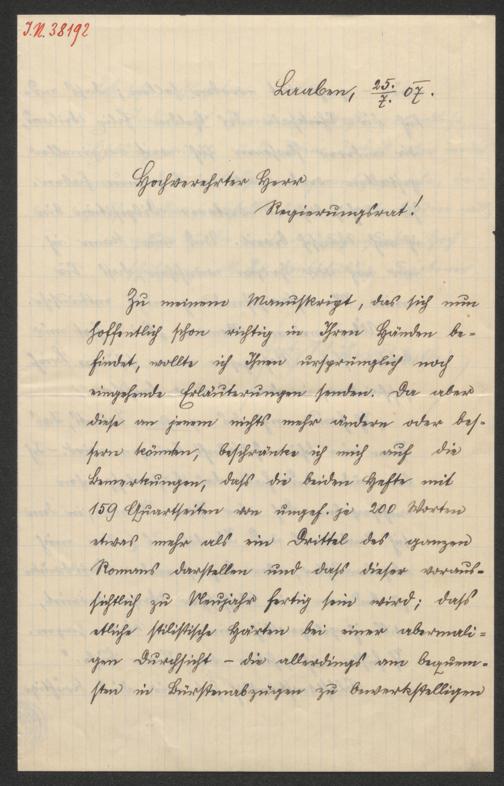 I.N. 38192
Laaben, 25./7. 07.
Hochverehrter Herr
Regierungsrat!
Zu meinem Manuskript, das sich nun
hoffentlich schon richtig in Ihren Händen be-
findet, wollte ich Ihnen ursprünglich noch
eingehende Erläuterungen senden. Da aber
diese an jenem nichts mehr ändern oder bes-
sern könnten, beschränke ich mich auf die
Bemerkungen, dass die beiden Hefte mit
159 Quartseiten von ungef. je 200 Worten
etwas mehr als ein Drittel des ganzen
Romans darstellen und dass dieser voraus-
sichtlich zu Neujahr fertig sein wird; dass
etliche stilistische Härten bei einer abermali-
gen Durchsicht – die allerdings am bequem-
sten in Bürstenabzügen zu bewerkstelligen